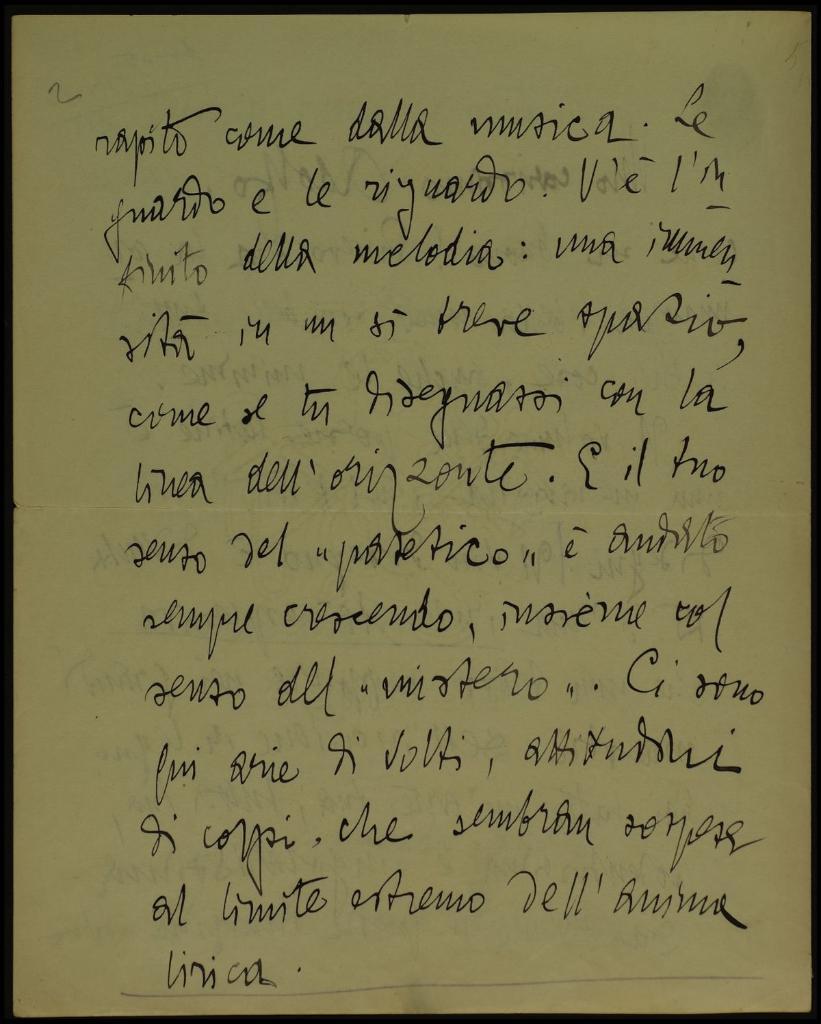 2
rapito come dalla musica. Le
guardo e le riguardo. V'è l'in
finito della melodia: una immen
sità in un sì breve spazio,
come se tu disegnassi con la
linea dell'orizzonte. E il tuo
senso del "patetico" è andato
sempre crescendo, insieme col
senso del "mistero". Ci sono
qui arie di volti, attitudini
di corpi, che sembran sospese
al limite estremo dell'anima
lirica.